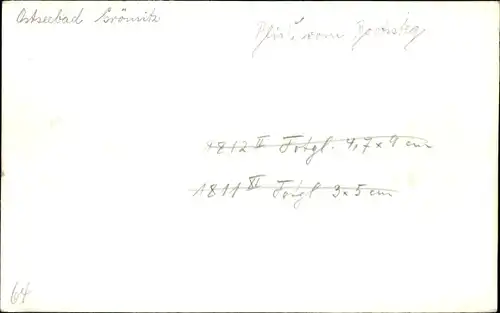 Ostseebad Grömitz
Blick vom Bootssteg
4812 II Torgl. 4,7 x 9 cm
1811 XI Torgl 3 x 5 cm
64